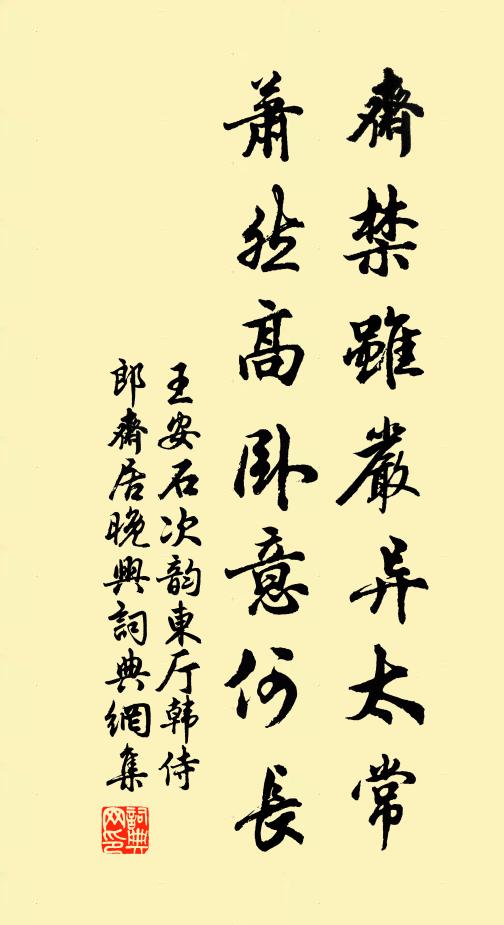 齋禁雖嚴异太常
蕭然高卧意何長
王安石次韵東厅韩侍
郎齋居晚興詞典網集
詞典
网印